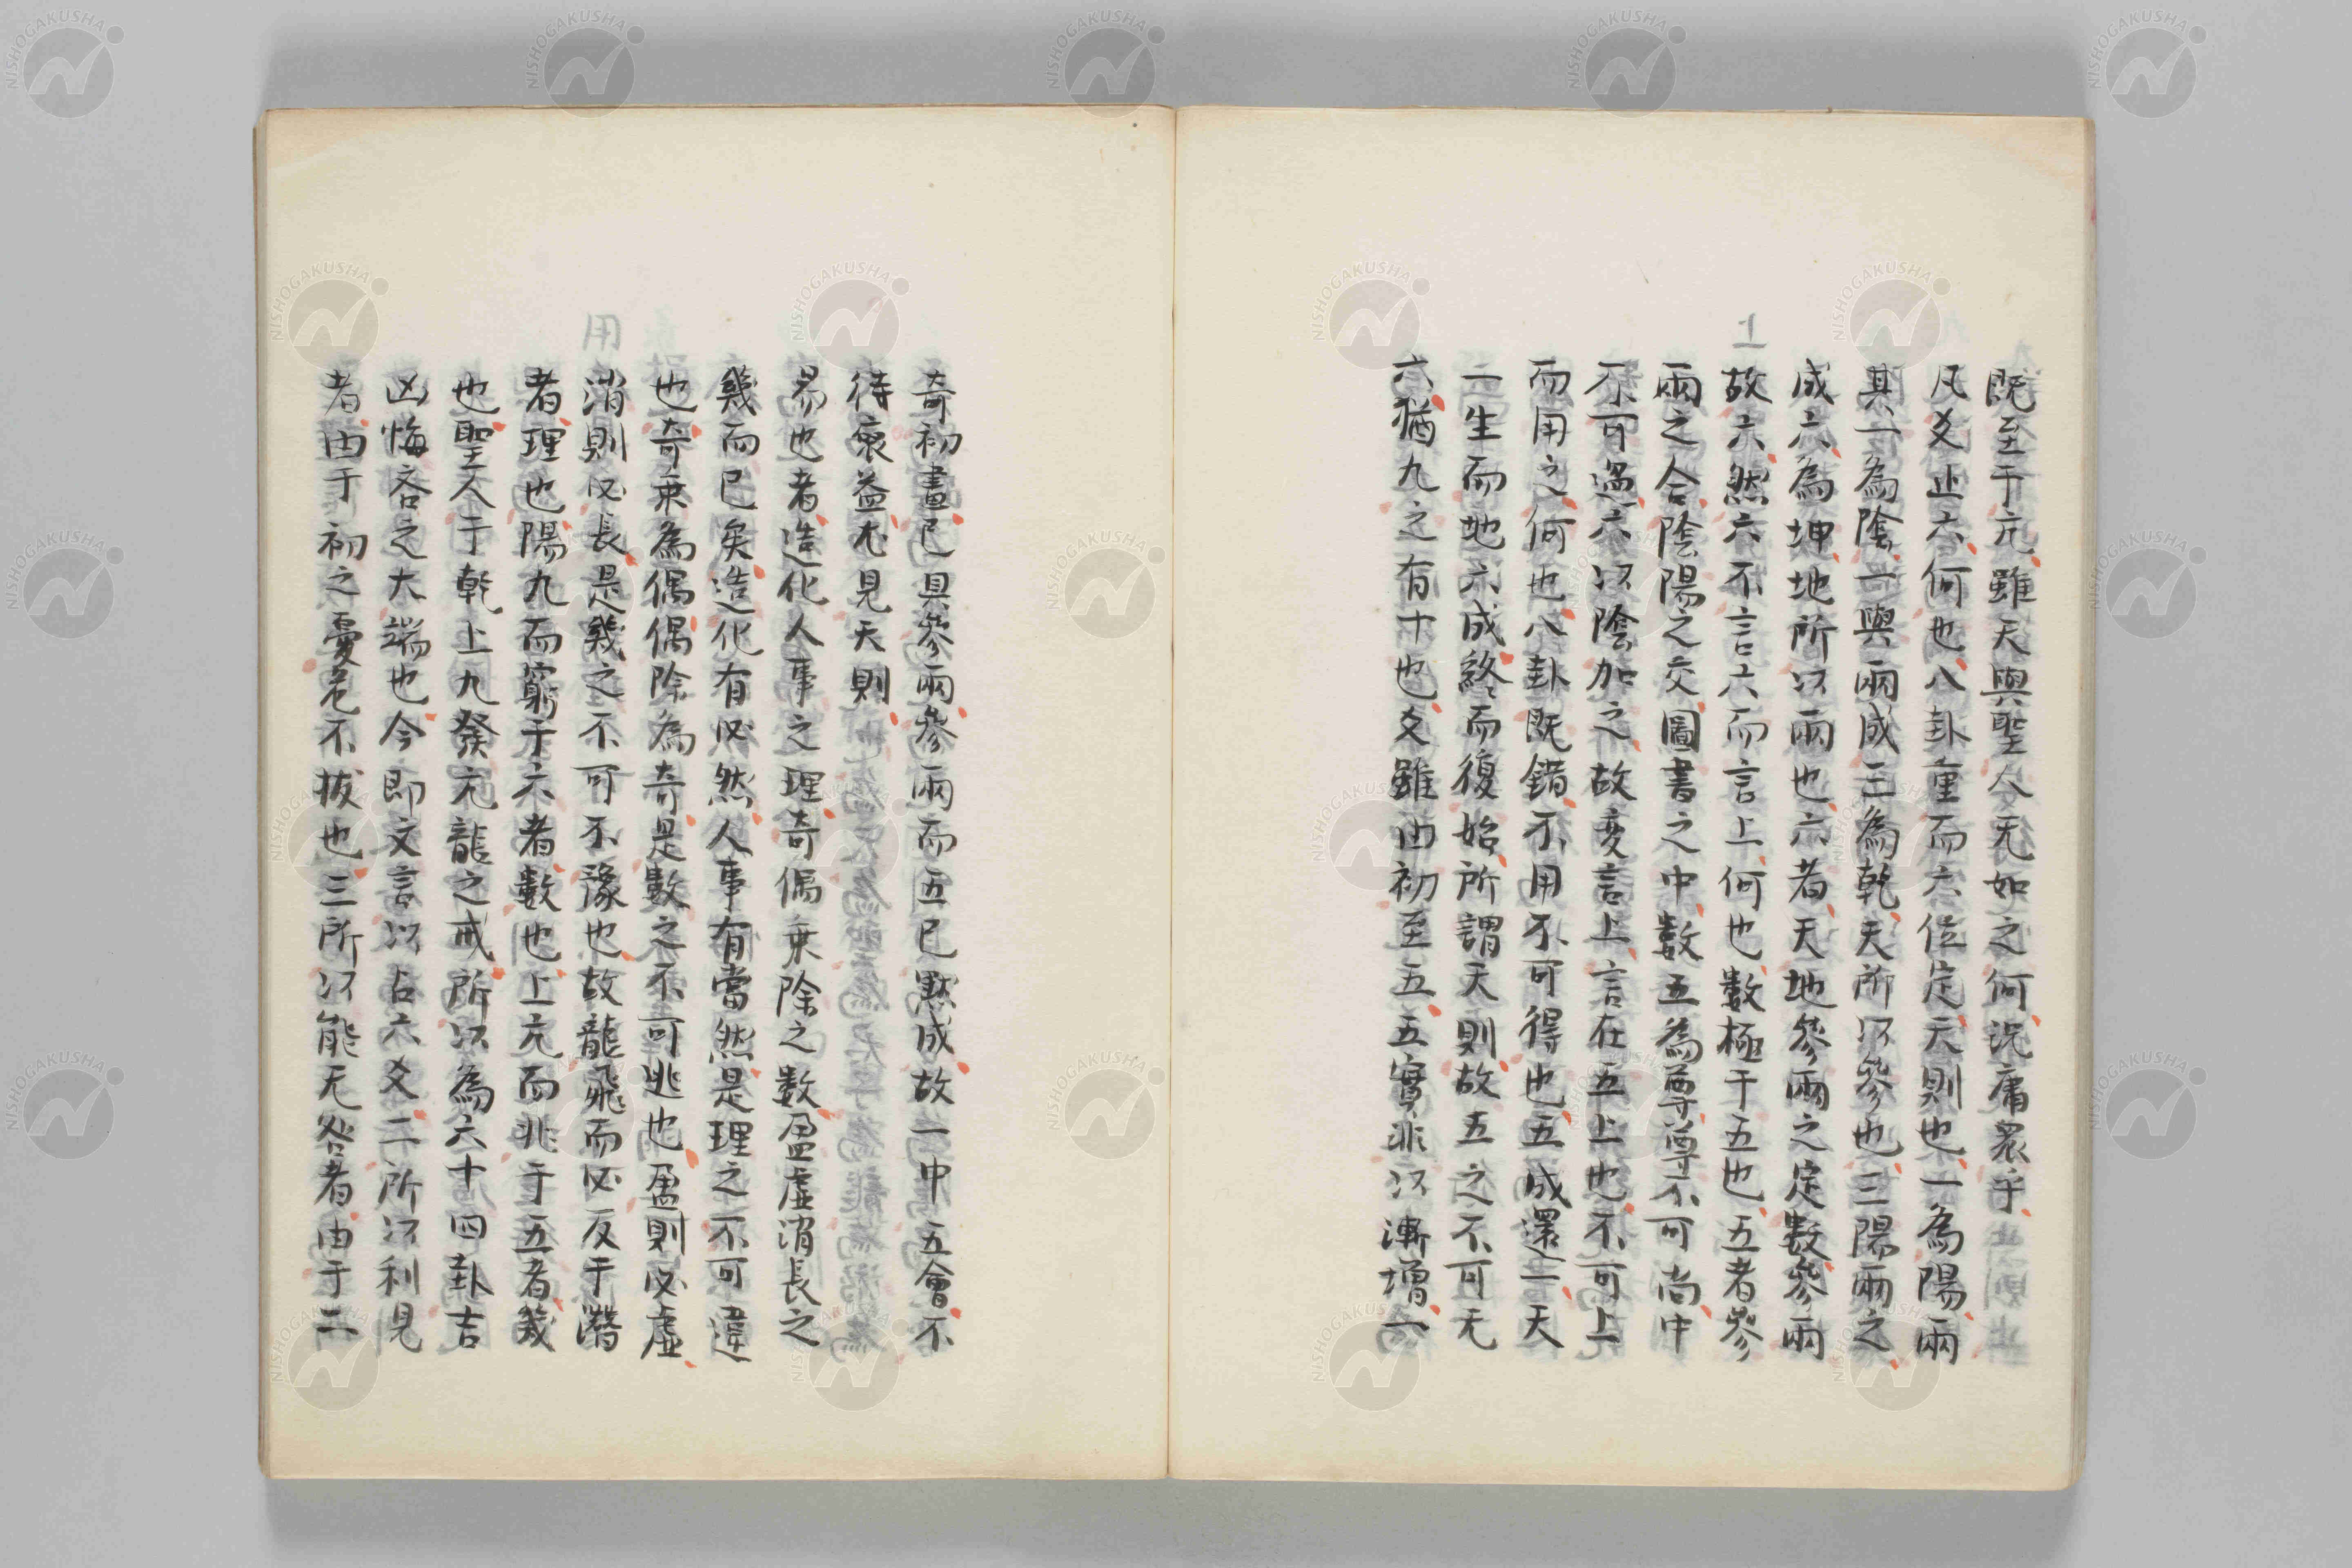 既至于亢雖天與聖人无如之何況庸衆乎
凡爻止六何也八卦重而六位定天則也一為陽兩
其一為陰一與兩成三為乾天所以參也三陽兩之
成六為坤地所以兩也六者天地參兩之定數參兩
故六然六不言六而言上何也數極于五也五者參
兩之合陰陽之交圖書之中數五為尊尊不可尚中
不可過六以陰加之故変言上言在五上也不可上
而用之何也八卦既錯不用不可得也五成還一天
一生而地六成終而復始所謂天則故五之不可无
六猶九之有十也爻雖由初至五五實非以漸增一
奇初畫已具參兩參兩而五已默成故一中五會不
待裒益尤見天則
易也者造化人事之理奇偶乗除之數盈虛消長之
幾而已矣造化有必然人事有當然是理之不可違
也奇乗為偶偶除為奇是數之不可逃也盈則必虛
消則必長是幾之不可不豫也故龍飛而必反于潛
者理也陽九而窮于六者數也上亢而兆于五者幾
也聖人于乾上九發亢龍之戒所以為六十四卦吉
凶悔吝之大端也今即文言以占六爻二所以利見
者由于初之憂危不拔也三所以能无咎者由于二
NISHOGAKUSHA